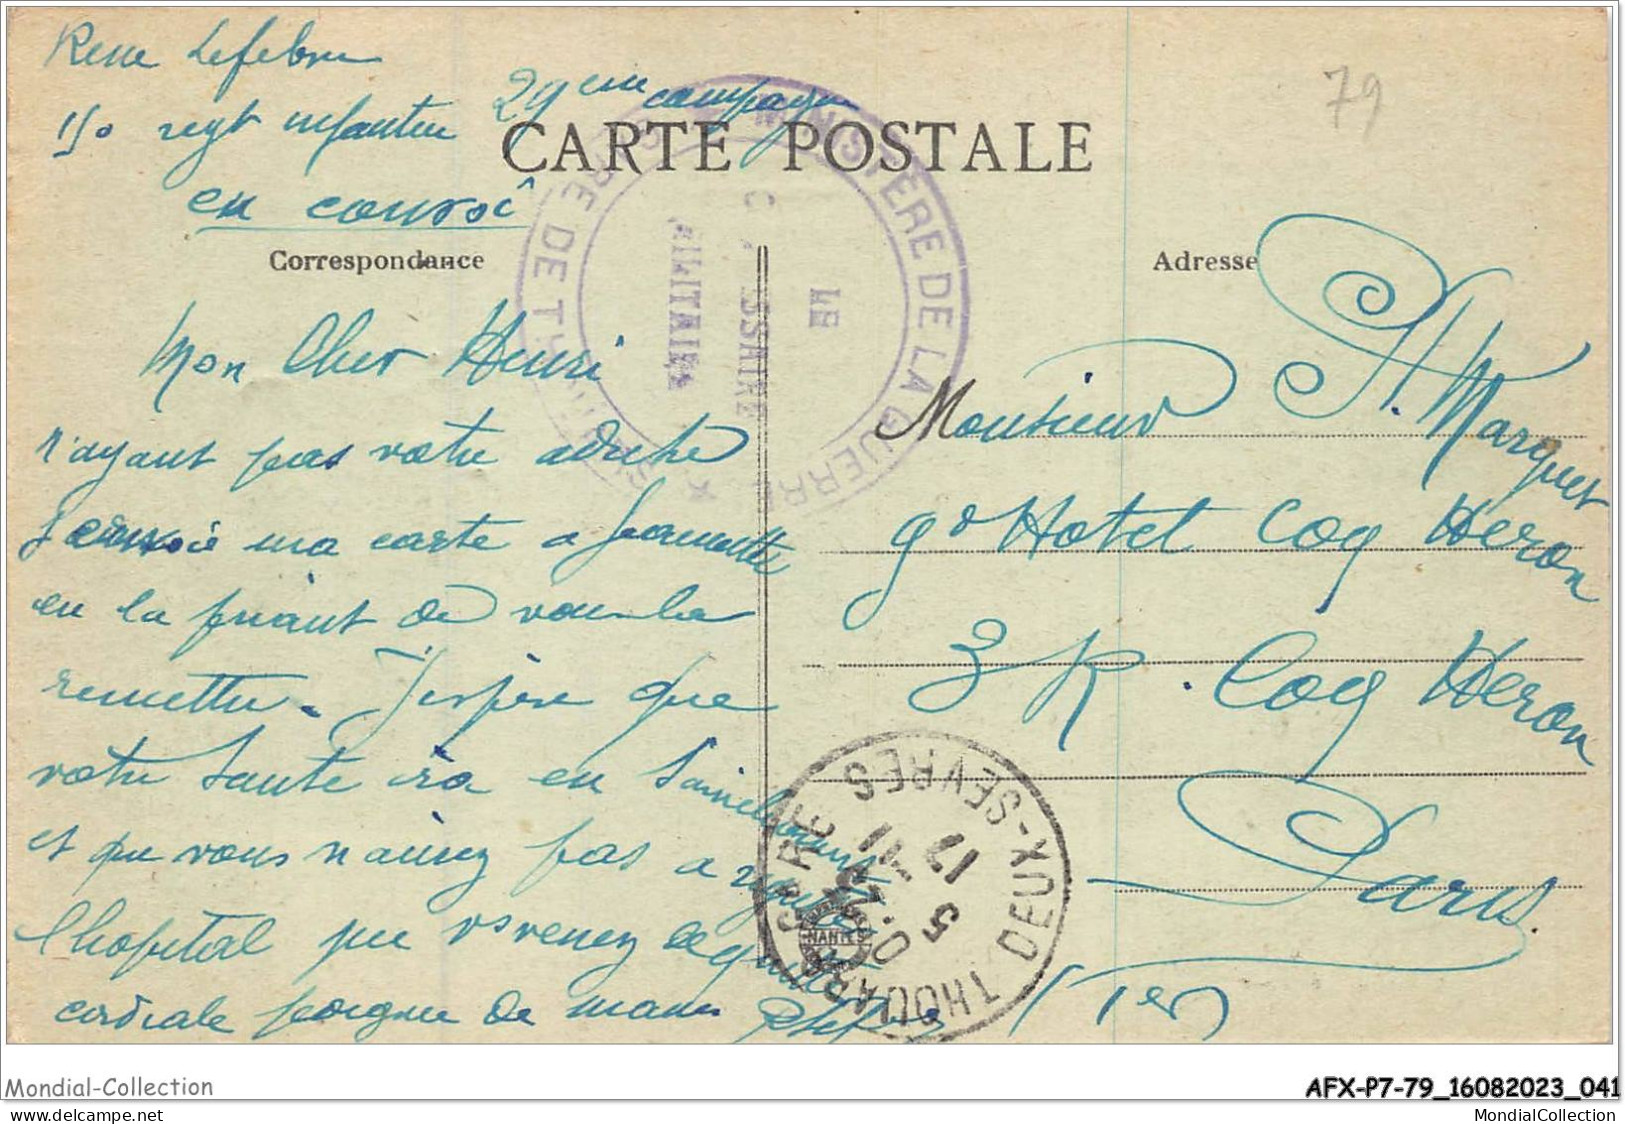 Rene Lefebvre
150 regt infanterie 29eme compagnie
en convoi
79
CARTE POSTALE
Correspondance
Adresse
MINISTÈRE DE LA GUERRE
GARE DE THOUARS
LE
MILITAIRE
Mon Cher Henri
n'ayant pas votre adresse
j'envoie ma carte a Jeannette
en la priant de vous la
remettre. J'espère que
votre Sante ira en s'ameliorant
et que vous n'aurez pas a regretter
l'hopital que vs venez de quitter
cordiale poignee de main
Monsieur H. Marquet
gd Hotel Coq Heron
3 R. Coq Heron
Paris
(1er)
THOUARS GARE DEUX-SEVRES
5
17
NANTES
Mondial-Collection
AFX-P7-79_16082023_041
MondialCollection